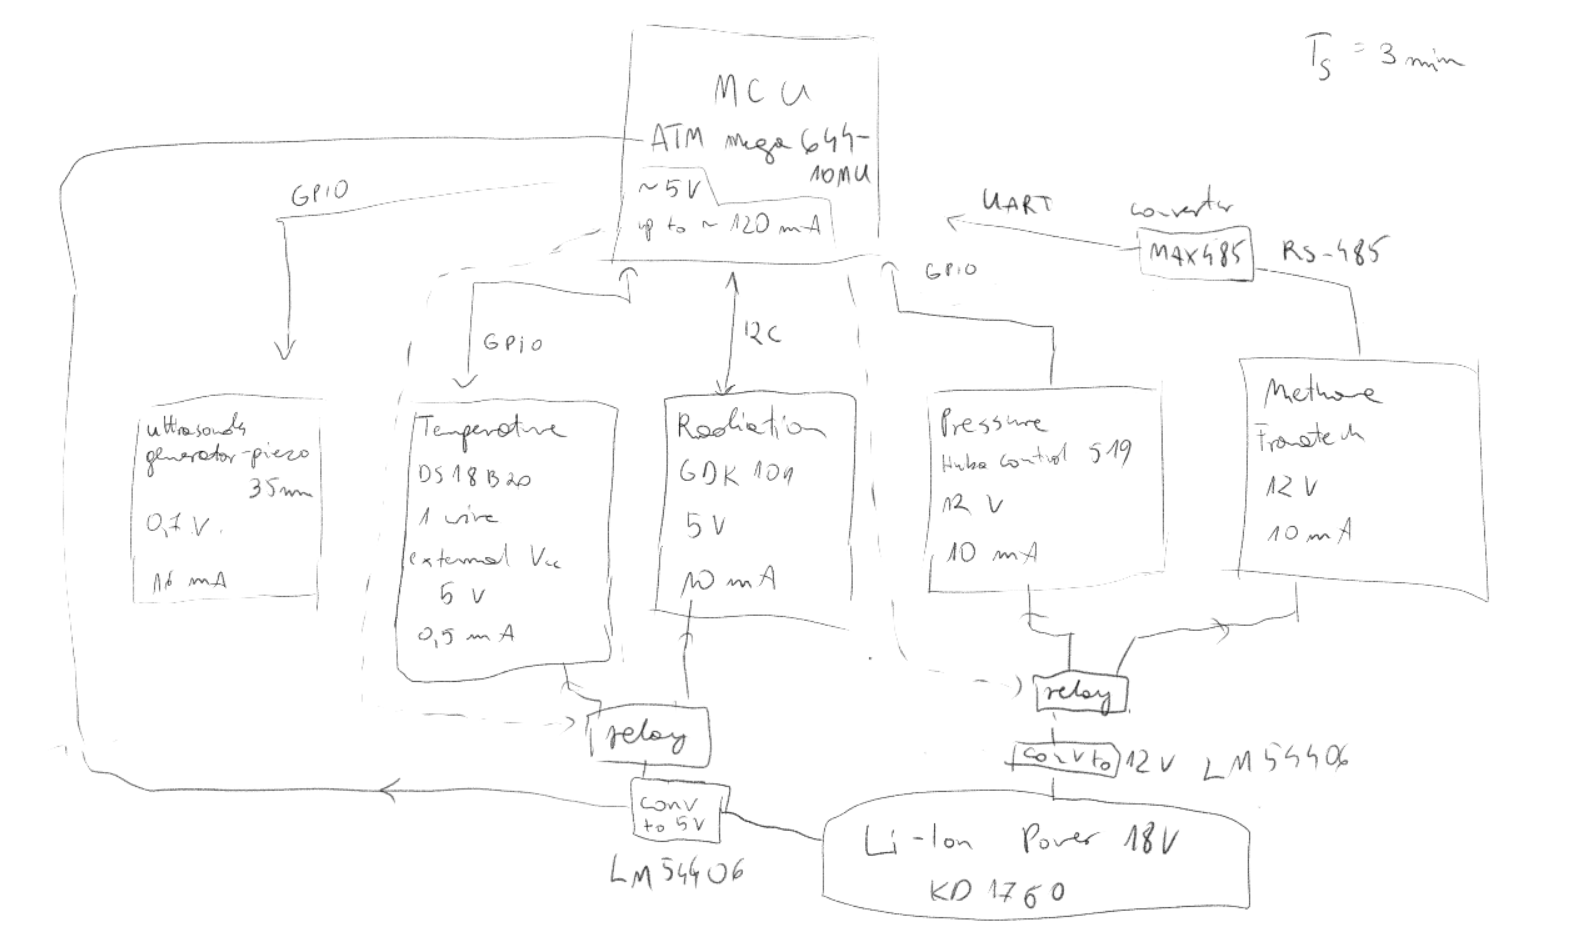 T_S = 3 min
MCU
ATM mega 644-
10MU
~5V
up to ~ 120 mA
GPIO
UART
converter
MAX485
RS-485
GPIO
GPiO
I2C
ultrasounds
generator-piezo
35mm
0,7 V.
16 mA
Temperature
DS18B20
1 wire
external Vcc
5 V
0,5 mA
Radiation
GDK 101
5 V
10 mA
Pressure
Huba Control 519
12 V
10 mA
Methane
Franatech
12 V
10 mA
relay
relay
conv to 12V LM54406
conv
to 5V
LM54406
Li-Ion Power 18V
KD 1760